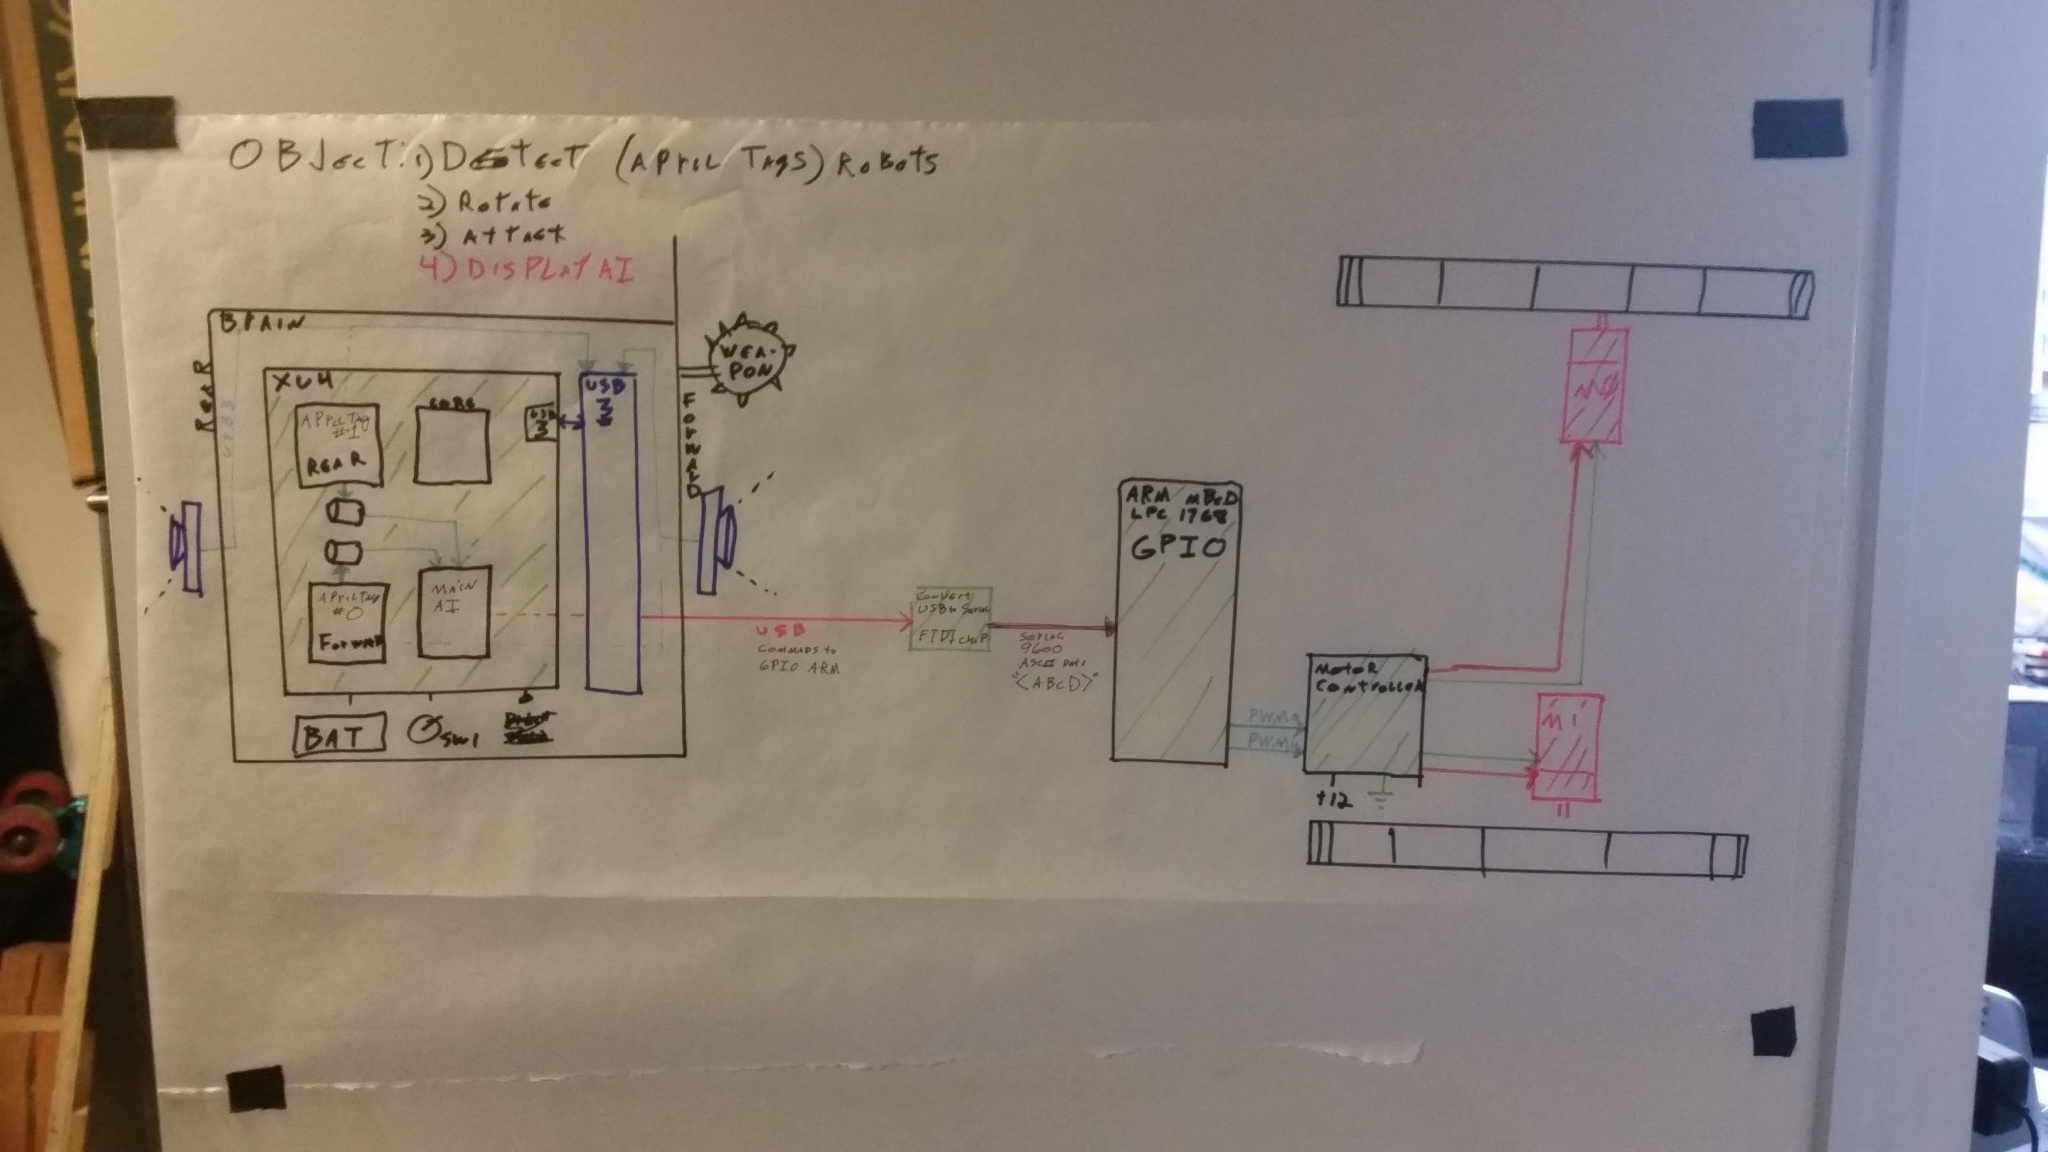 OBJECT: 1) DETECT (APRIL TAGS) ROBOTS
2) Rotate
3) Attack
4) DISPLAY AI
BRAIN
REAR
XU4
APRIL TAG
#1
REAR
CORE
USB
3
USB
3
WEA-
PON
FORWARD
APRIL TAG
#0
FORWARD
MAIN
AI
BAT
SW1
USB
COMMANDS to
GPIO ARM
Convert
USB to Serial
FTDI chip
SERIAL
9600
ASCII
"<ABCD>"
ARM MBED
LPC 1768
GPIO
PWM
PWM
MOTOR
CONTROLLER
+12
M0
M1